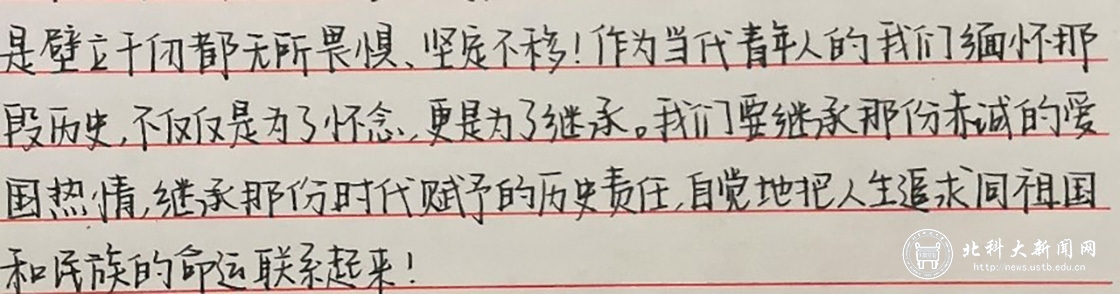 是壁立千仞都无所畏惧、坚定不移！作为当代青年人的我们缅怀那
段历史，不仅仅是为了怀念，更是为了继承。我们要继承那份赤诚的爱
国热情，继承那份时代赋予的历史责任，自觉地把人生追求同祖国
和民族的命运联系起来！
北科大新闻网
http://news.ustb.edu.cn